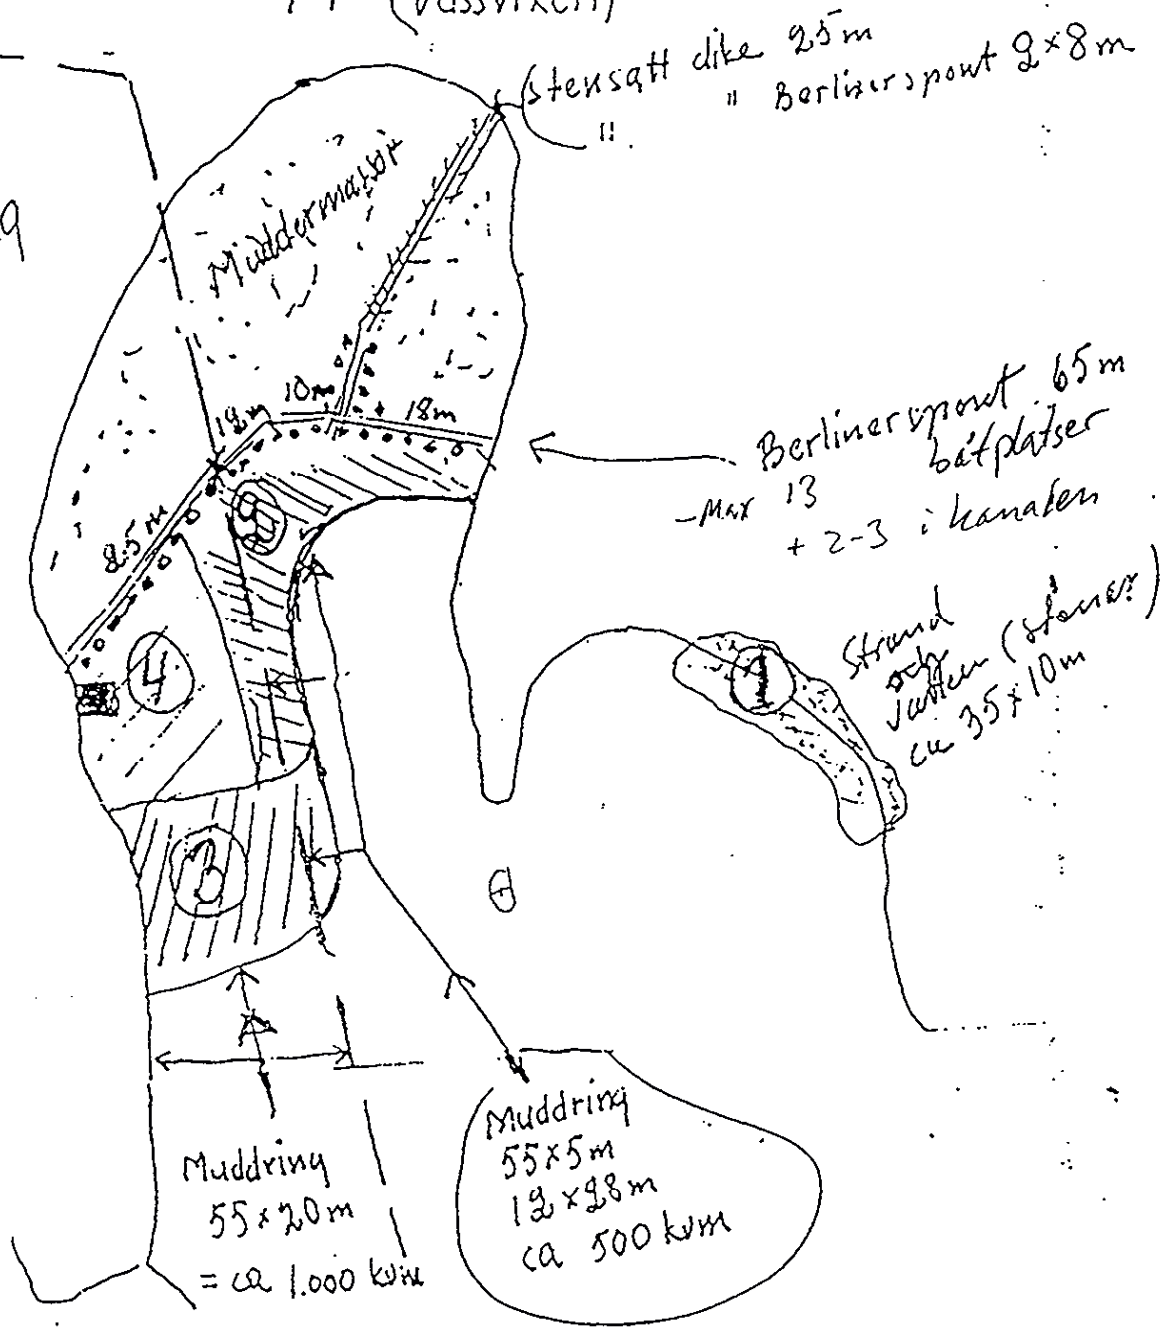 (vassvixen)
Stensatt dike 25m
" " Berlinerspont 2×8m
9
Muddermassor
10m
12m
18m
25m
Berlinerspont 65m
-Max 13 båtplatser
+ 2-3 i kanalen
5
4
3
1
Strand
och
vatten
ca 35×10m
Muddring
55×20m
= ca 1.000 kvm
Muddring
55×5m
12×28m
ca 500 kvm